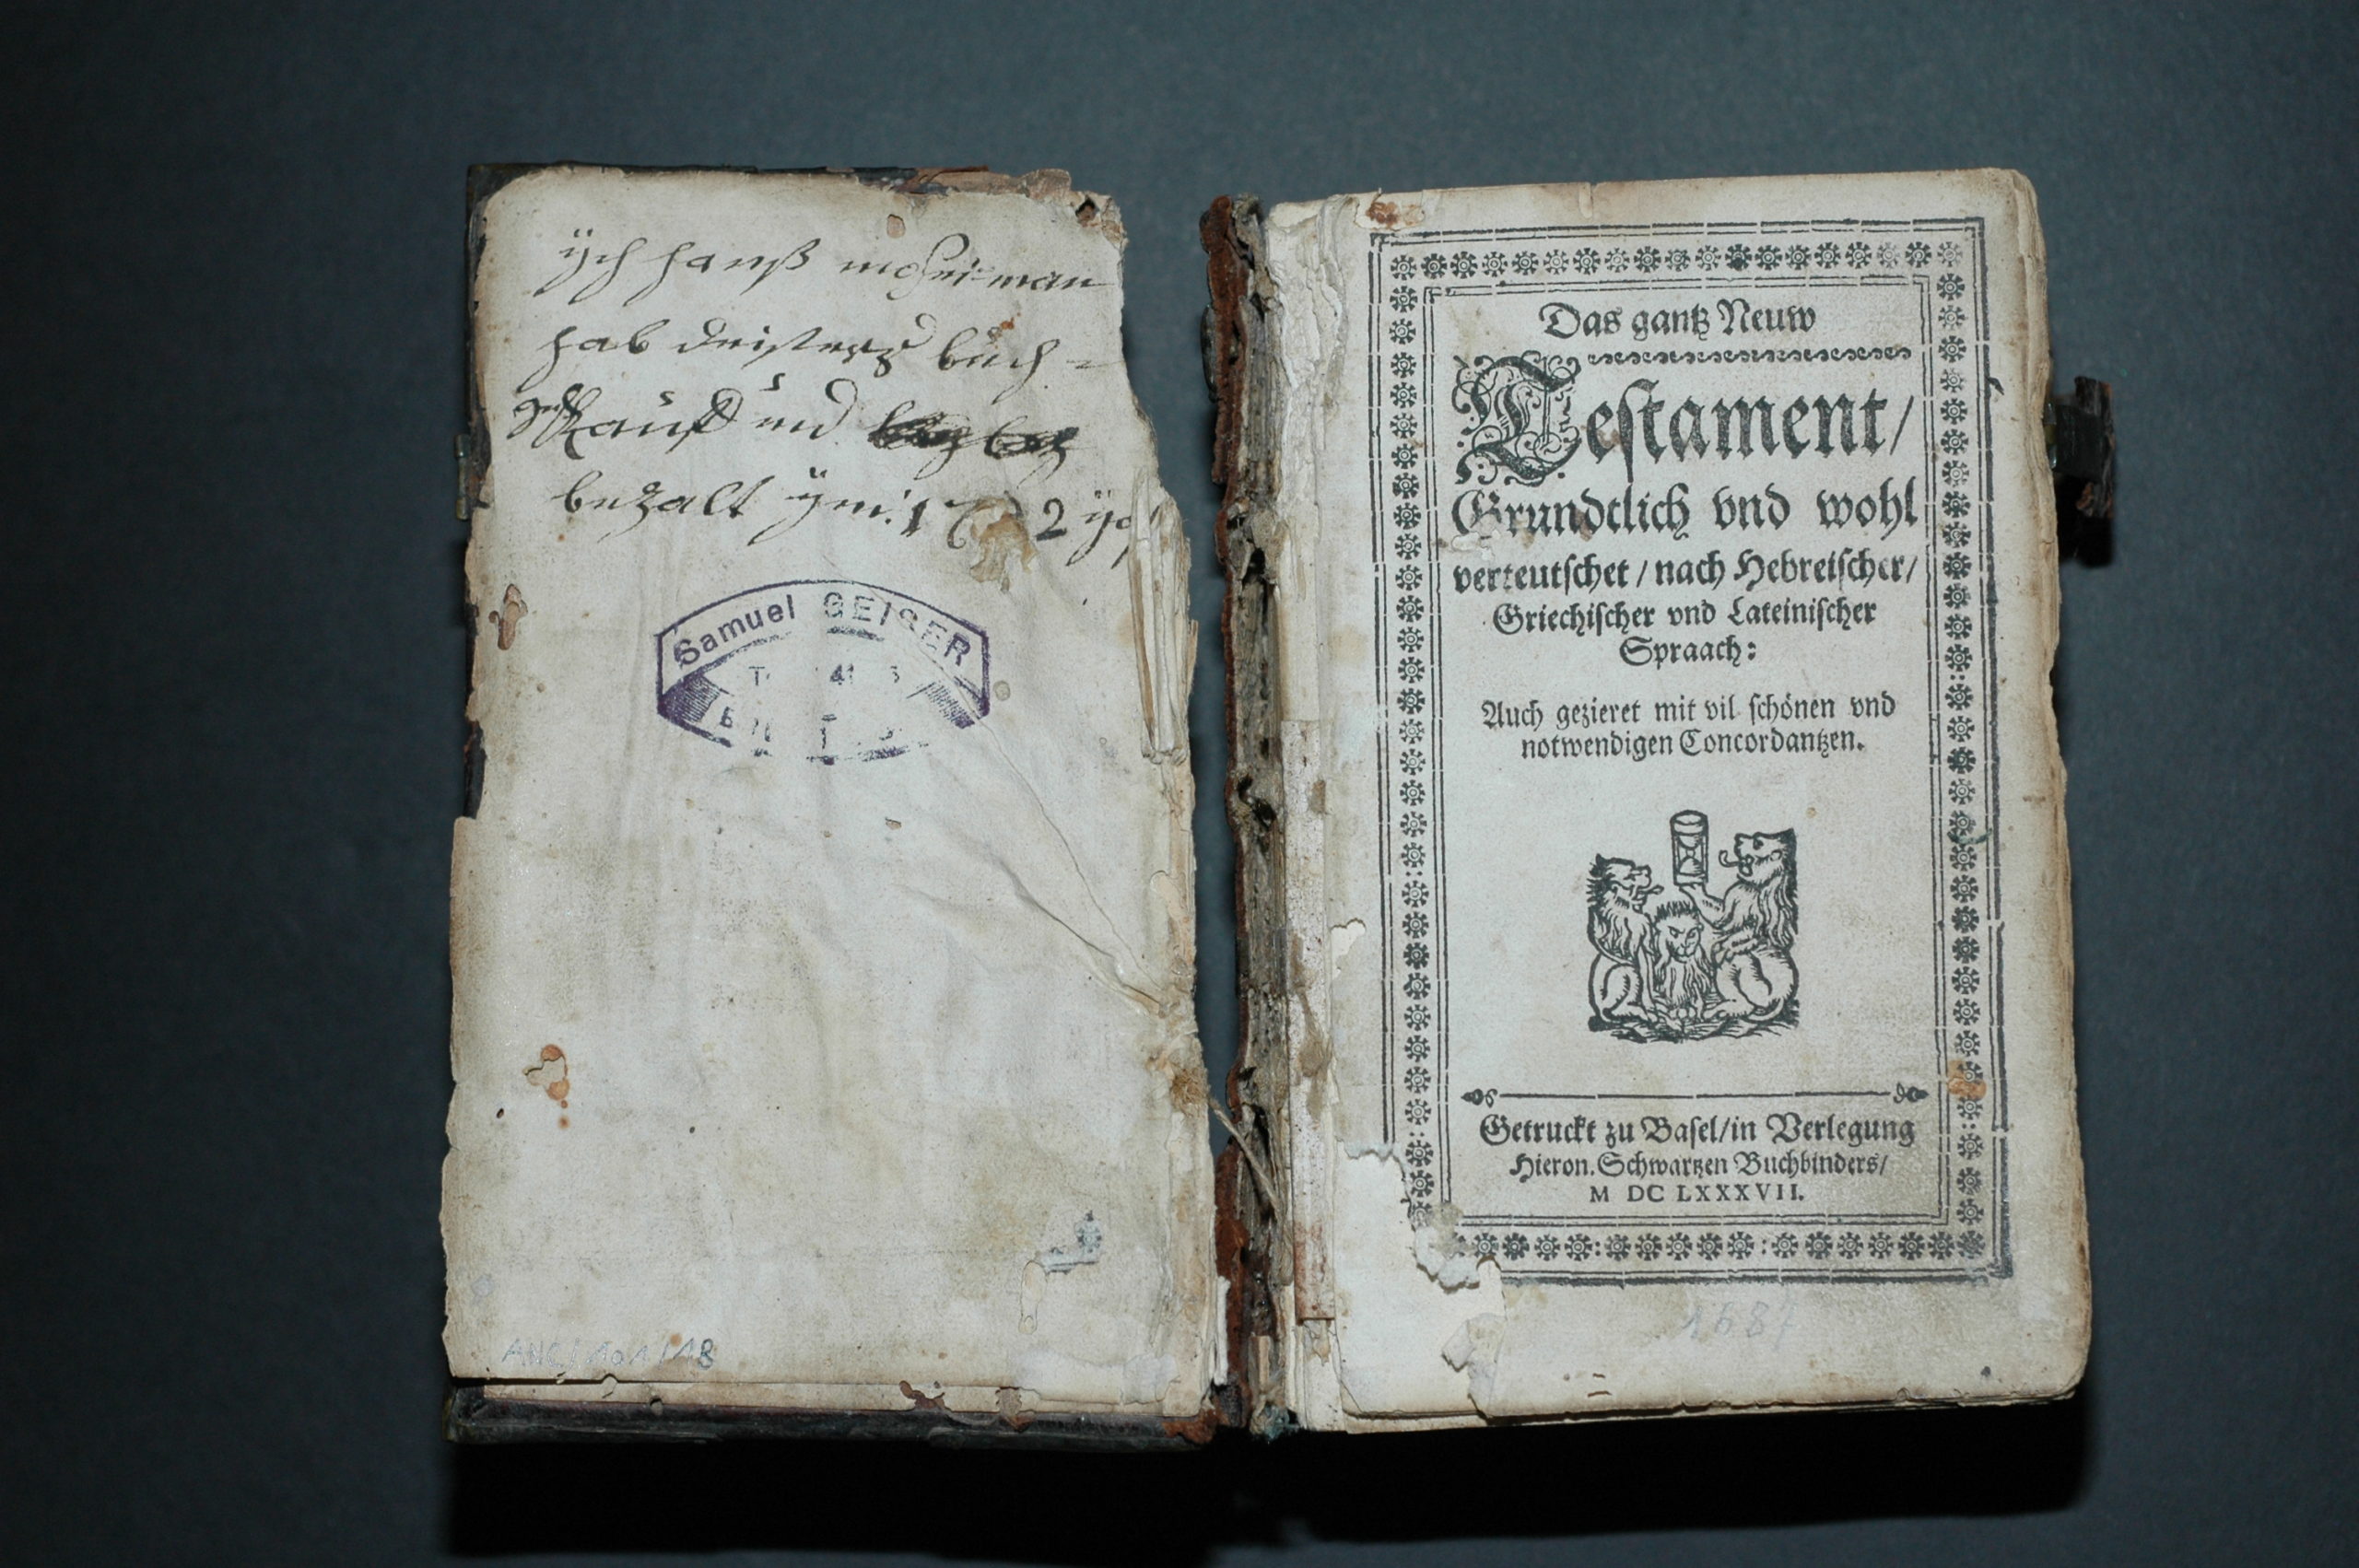 ÿch hanß moserman
hab dristerß buch =
Kauft und
bezalt ÿm: 17 2
Samuel GEISER
ANC/101/18
Das gantz Neuw
Testament/
Grundtlich vnd wohl
verteutschet / nach Hebreischer/
Griechischer vnd Lateinischer
Spraach:
Auch gezieret mit vil schönen vnd
notwendigen Concordantzen.
Getruckt zu Basel/in Verlegung
Hieron. Schwartzen Buchbinders/
M DC LXXXVII.
1687